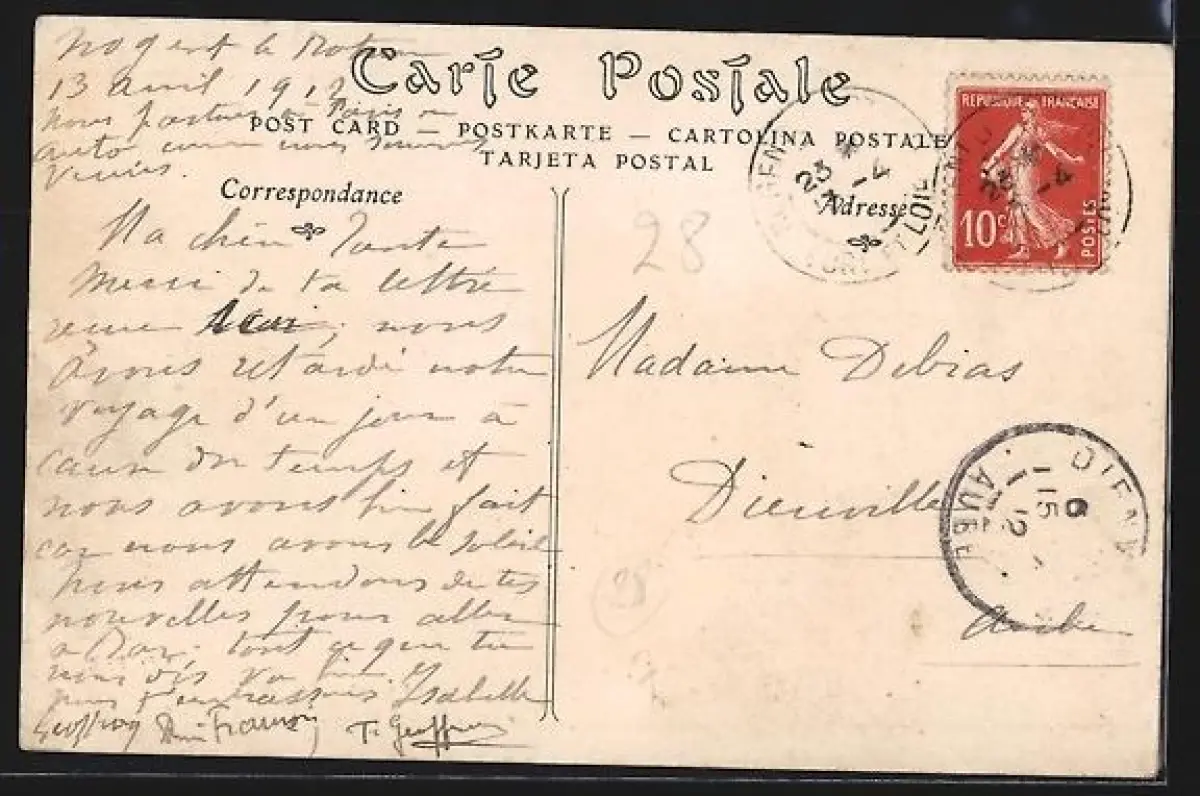 Nogent le Rotrou
13 avril 1912
nous partons à Paris en
auto comme nous sommes
venus.
Carte Postale
POST CARD — POSTKARTE — CARTOLINA POSTALE
TARJETA POSTAL
Correspondance
Adresse
Ma chère Tante
Merci de ta lettre
reçue nous
avons retardé notre
voyage d'un jour à
cause du temps et
nous avons bien fait
car nous avons le soleil
nous attendons de tes
nouvelles pour aller
à Bar. tout ce que tu
nous dis va bien. et
nous t'embrassons Isabelle
Geoffroy T. Geoffroy
28
REPUBLIQUE FRANÇAISE
10c
POSTES
23 -4
23 -4
ET LOIR
Madame Debias
Dienville
Aube
DIENV
6
15 -
12
AUBE
28